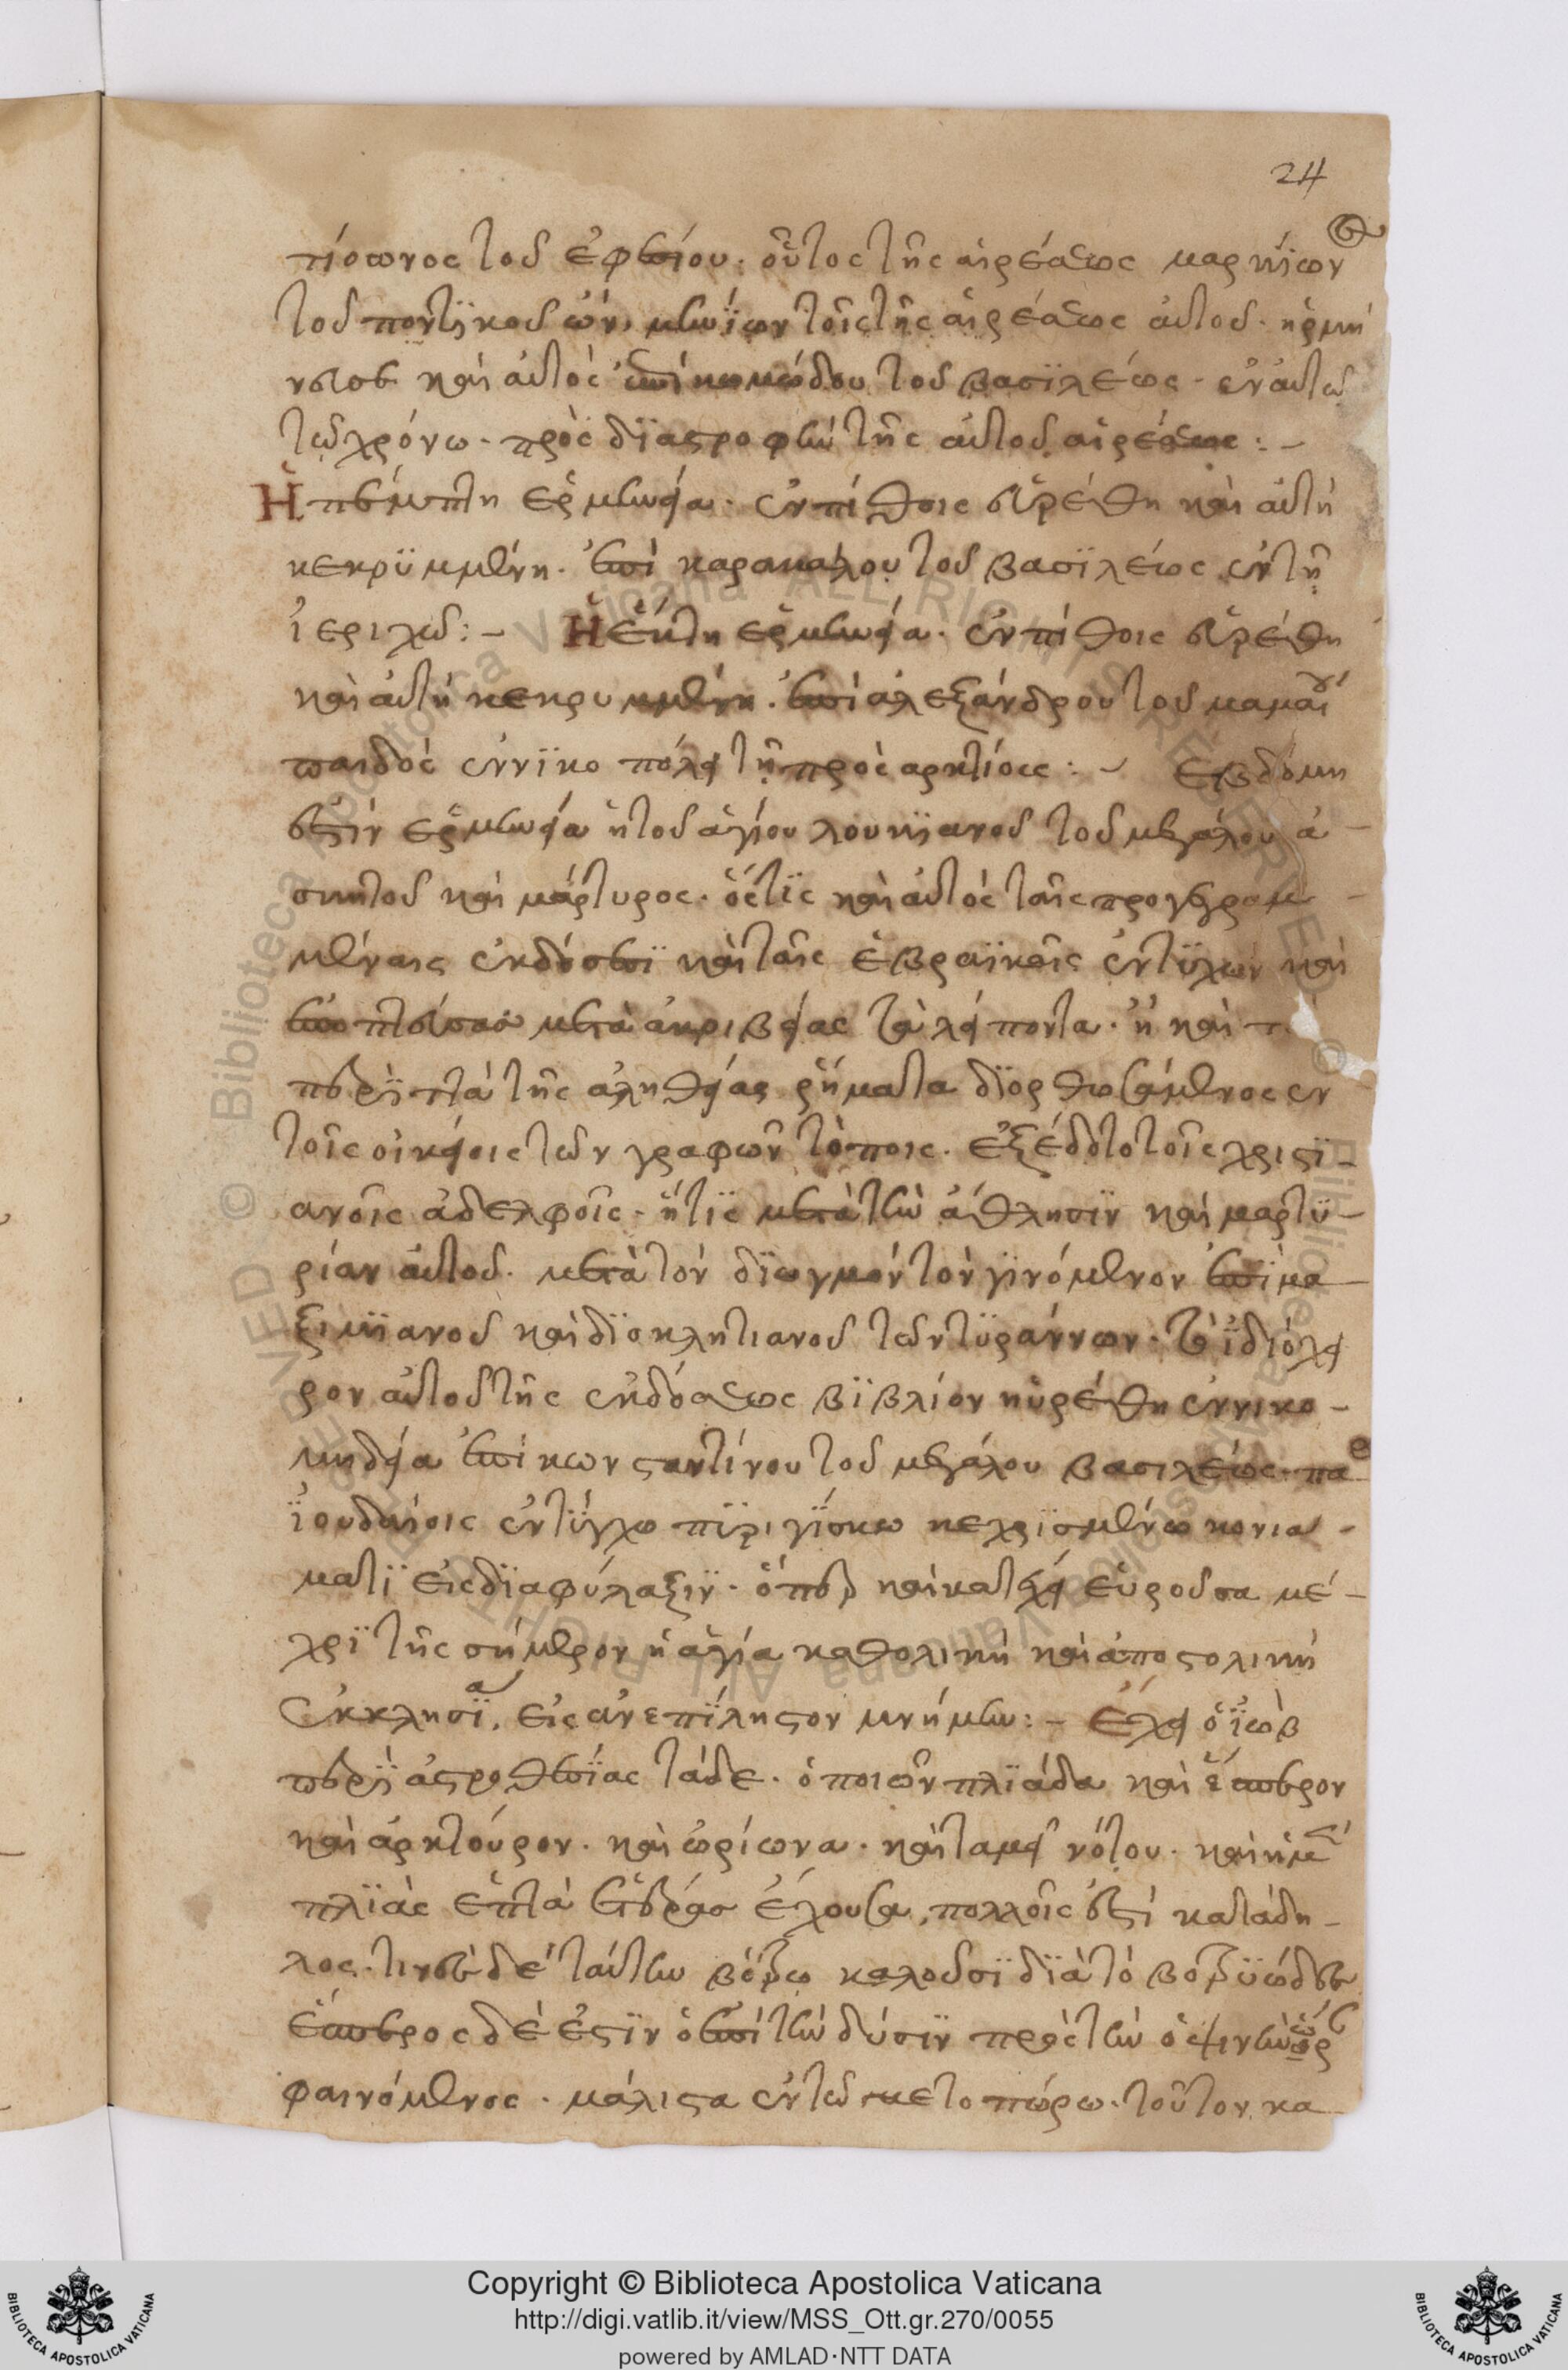 24
πίωνος τοῦ ἐφεσίου· οὗτος τῆς αἱρέσεως μαρκΐων
τοῦ ποντϊκοῦ ὤν, μηνΐων τοῖς τῆς αἱρέσεως αὐτοῦ· ἡρμή
νευσε καὶ αὐτὸς ἐπὶ κωμώδου τοῦ βασϊλέως· ἐν αὐτῶ
τῶ χρόνω· πρὸς δϊαςροφὴν τῆς αὐτοῦ αἱρέσεως :-
Ἡ πέμπτη ἑρμηνεία· ἐν πίθοις εὑρέθη καὶ αὐτὴ
κεκρϋμμένη· ἐπὶ καρακάλου τοῦ βασϊλέως ἐν τῆ
ἱεριχῶ :- Ἡ ἕκτη ἑρμηνεία· ἐν πίθοις εὑρέθη
καὶ αὐτὴ κεκρυμμένη· ἐπὶ ἀλεξάνδρου τοῦ μαμαί
παιδὸς ἐν νϊκοπόλει τῆ πρὸς ἀρκτίοις :- ἑβδόμη
ἐςὶν ἑρμηνεία ἡ τοῦ ἁγίου λουκϊανοῦ τοῦ μεγάλου ἀ-
σκητοῦ καὶ μάρτυρος· ὅςτϊς καὶ αὐτὸς ταῖς προγεγραμ-
μέναις ἐκδόσεσϊ καὶ ταῖς ἑβραϊκαῖς ἐντϋχὼν καὶ
ἐποπτεύσας μετὰ ἀκριβείας τὰ λείποντα· ἢ καὶ τ
περϊττὰ τῆς ἀληθείας ῥήματα δϊορθωσάμενος ἐν
τοῖς οἰκείοις τῶν γραφῶν τόποις· ἐξέδοτο τοῖς χριςϊ-
ανοῖς ἀδελφοῖς· ἥτϊς μετὰ τὴν ἄθλησϊν καὶ μαρτϋ-
ρίαν αὐτοῦ· μετὰ τὸν δϊωγμὸν τὸν γϊνόμενον ἐπὶ μα-
ξιμϊανοῦ καὶ δϊοκλητιανοῦ τῶν τϋράννων· τὸ ἰδιόχει
ρον αὐτοῦ τῆς ἐκδόσεως βϊβλίον ηὑρέθη ἐν νικο-
μηδεία ἐπὶ κωνςαντίνου τοῦ μεγάλου βασιλέως· πα
ἰουδαίοις ἐν τϋγχω πϋργΐσκω κεχρϊσμένω κονια-
ματϊ εἰς δϊαφύλαξιν· ὅπερ καὶ κατέχει εὑροῦσα μέ-
χρϊ τῆς σήμερον ἡ ἁγία καθολικὴ καὶ ἀποςολικὴ
ἐκκλησία, εἰς ἀνεπΐληςον μνήμην :- Ἔχει ὁ ἰὼβ
περϊ ἀςροθεσΐας τάδε· ὁ ποιῶν πλϊάδα καὶ ἕσπερον
καὶ ἀρκτοῦρον· καὶ ὠρίωνα· καὶ ταμεῖ νότου· καὶ ἡ μ
πλϊὰς ἑπτὰ ἀςέρας ἔχουσα, πολλοῖς ἐςὶ κατάδη-
λος· τινὲς δὲ ταύτην βότρϋ καλοῦσϊ δϊὰ τὸ βοτρϋῶδες
ἕσπερος δέ ἐςϊν ὁ ἐπὶ τὴν δύσϊν πρὸς τὴν ὀψινὴν ὥρ
φαινόμενος· μάλιςα ἐν τῶ μετοπώρω· τοῦτον κα
Copyright © Biblioteca Apostolica Vaticana
http://digi.vatlib.it/view/MSS_Ott.gr.270/0055
powered by AMLAD·NTT DATA